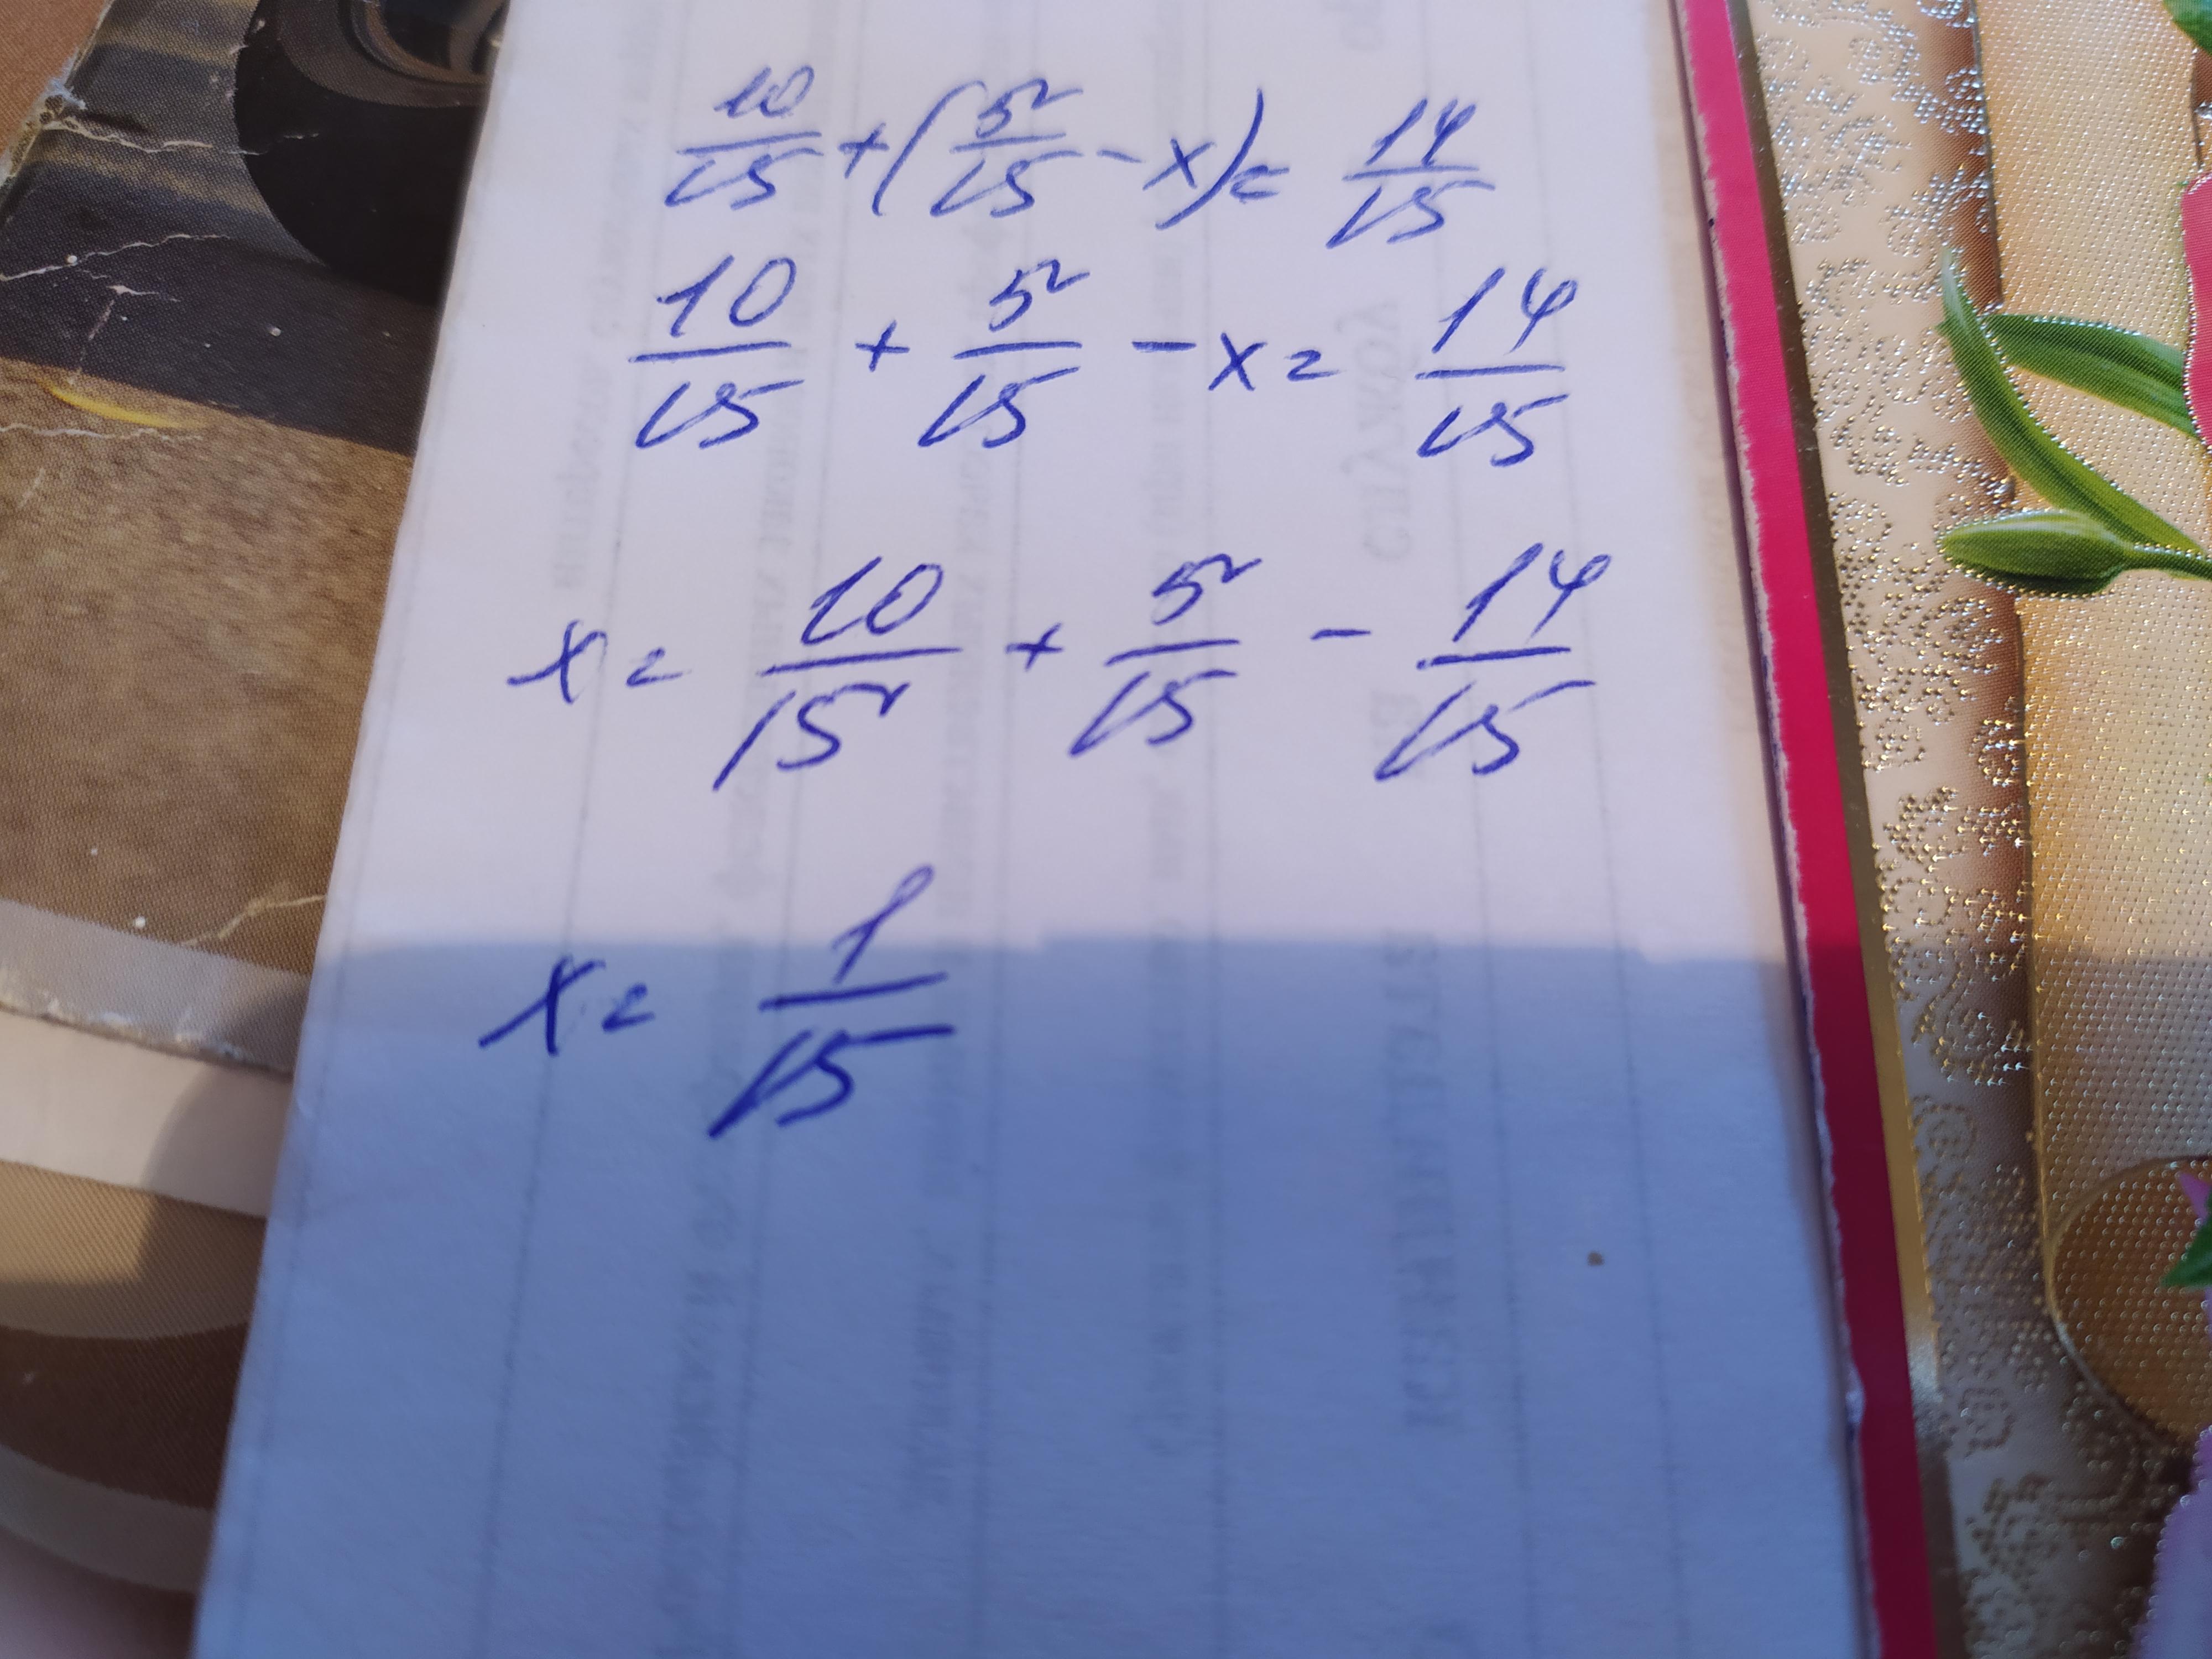 10/15 + (5/15 - x) = 14/15
10/15 + 5/15 - x = 14/15
x = 10/15 + 5/15 - 14/15
x = 1/15